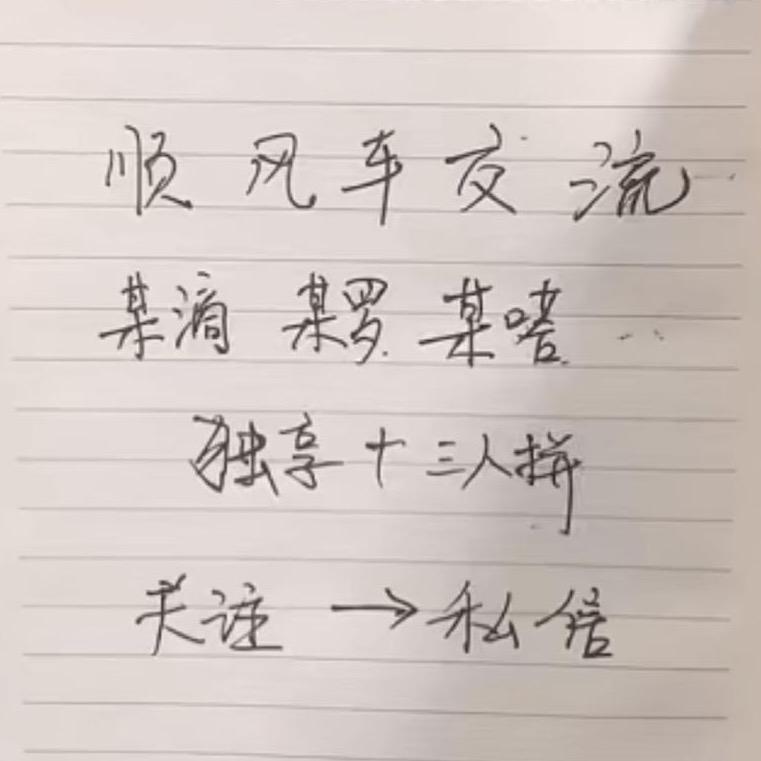 顺风车交流
某滴 某罗 某嗒
独享+三人拼
关注→私信